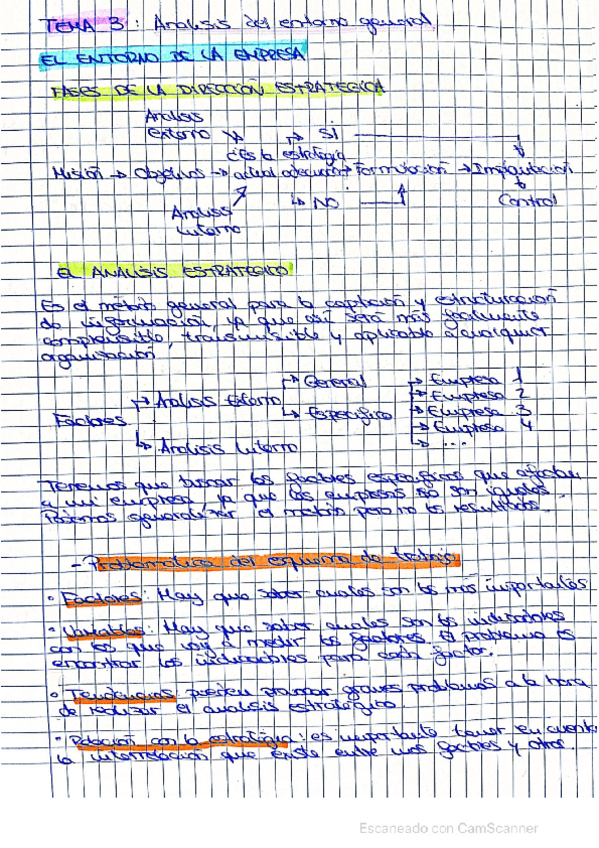 TEMA 3: Análisis del entorno general
EL ENTORNO DE LA EMPRESA
FASES DE LA DIRECCIÓN ESTRATEGICA
Análisis
externo
SI
¿Es la estrategia
Misión → Objetivos → actual adecuada? → Formulación → Implantación
NO
Control
Análisis
interno
EL ANALISIS ESTRATEGICO
Es el método general para la captación y estructuración
de información, ya que así será más fácilmente
comprensible, transmisible y aplicable a cualquier
organización
General
Empresa 1
Empresa 2
Análisis Externo
Específico
Empresa 3
Factores
Empresa 4
Análisis Interno
...
Tenemos que buscar los factores específicos que afectan
a mi empresa, ya que las empresas no son iguales.
Podemos generalizar el método pero no los resultados.
- Problemática del esquema de trabajo
• Factores: Hay que saber cuales son los más importantes
• Variables: Hay que saber cuales son los indicadores
con los que voy a medir los factores. El problema es
encontrar los indicadores para cada factor.
• Tendencias: pueden graves problemas a la hora
de realizar el analisis estratégico.
• Relación con la estrategia: es importante tener en cuenta
la interrelación que existe entre unos factores y otros.
Escaneado con CamScanner